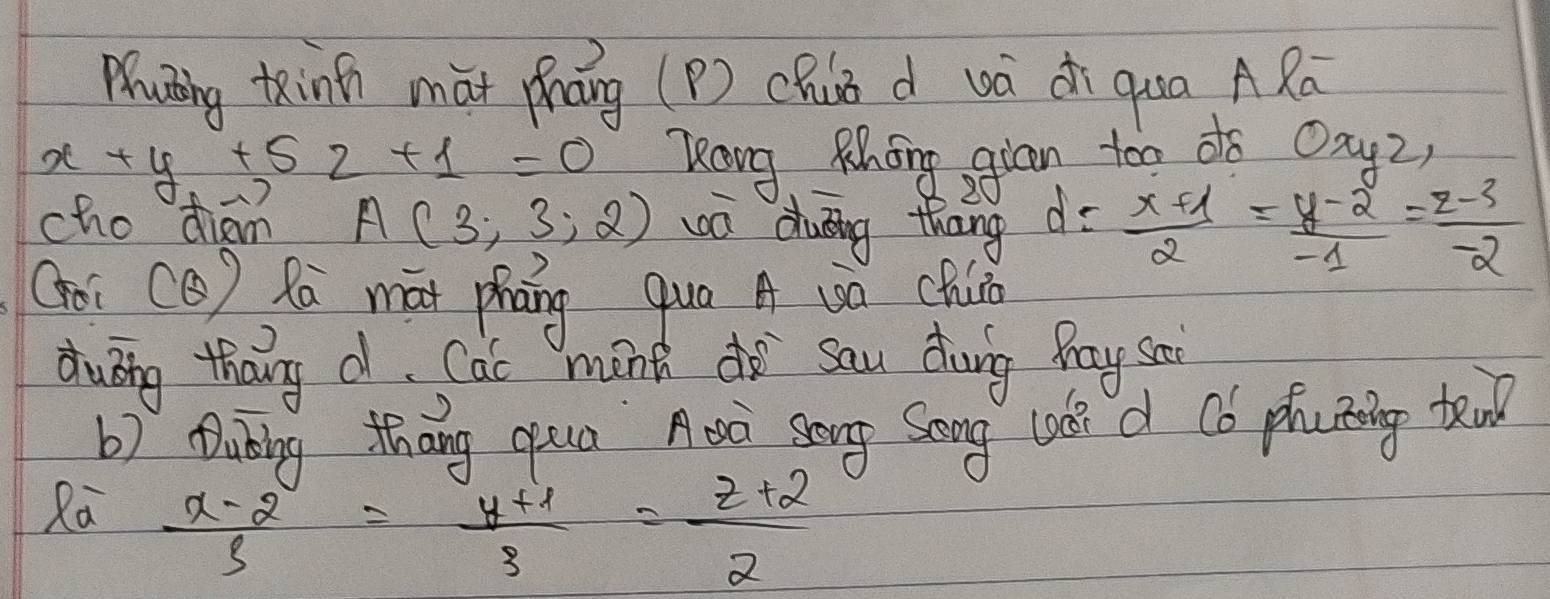 Phương trình mặt phẳng (P) chứa d và đi qua A là
x + y + 5z + 1 = 0 Trong không gian toạ độ Oxyz,
cho điểm A (3; 3; 2) và đường thẳng d: \frac{x+1}{2} = \frac{y-2}{-1} = \frac{z-3}{-2}
Gọi (Q) là mặt phẳng qua A và chứa
đường thẳng d. Các mệnh đề sau đúng hay sai
b) Đường thẳng qua A và song song với d có phương trình
là \frac{x-2}{3} = \frac{y+1}{3} = \frac{z+2}{2}